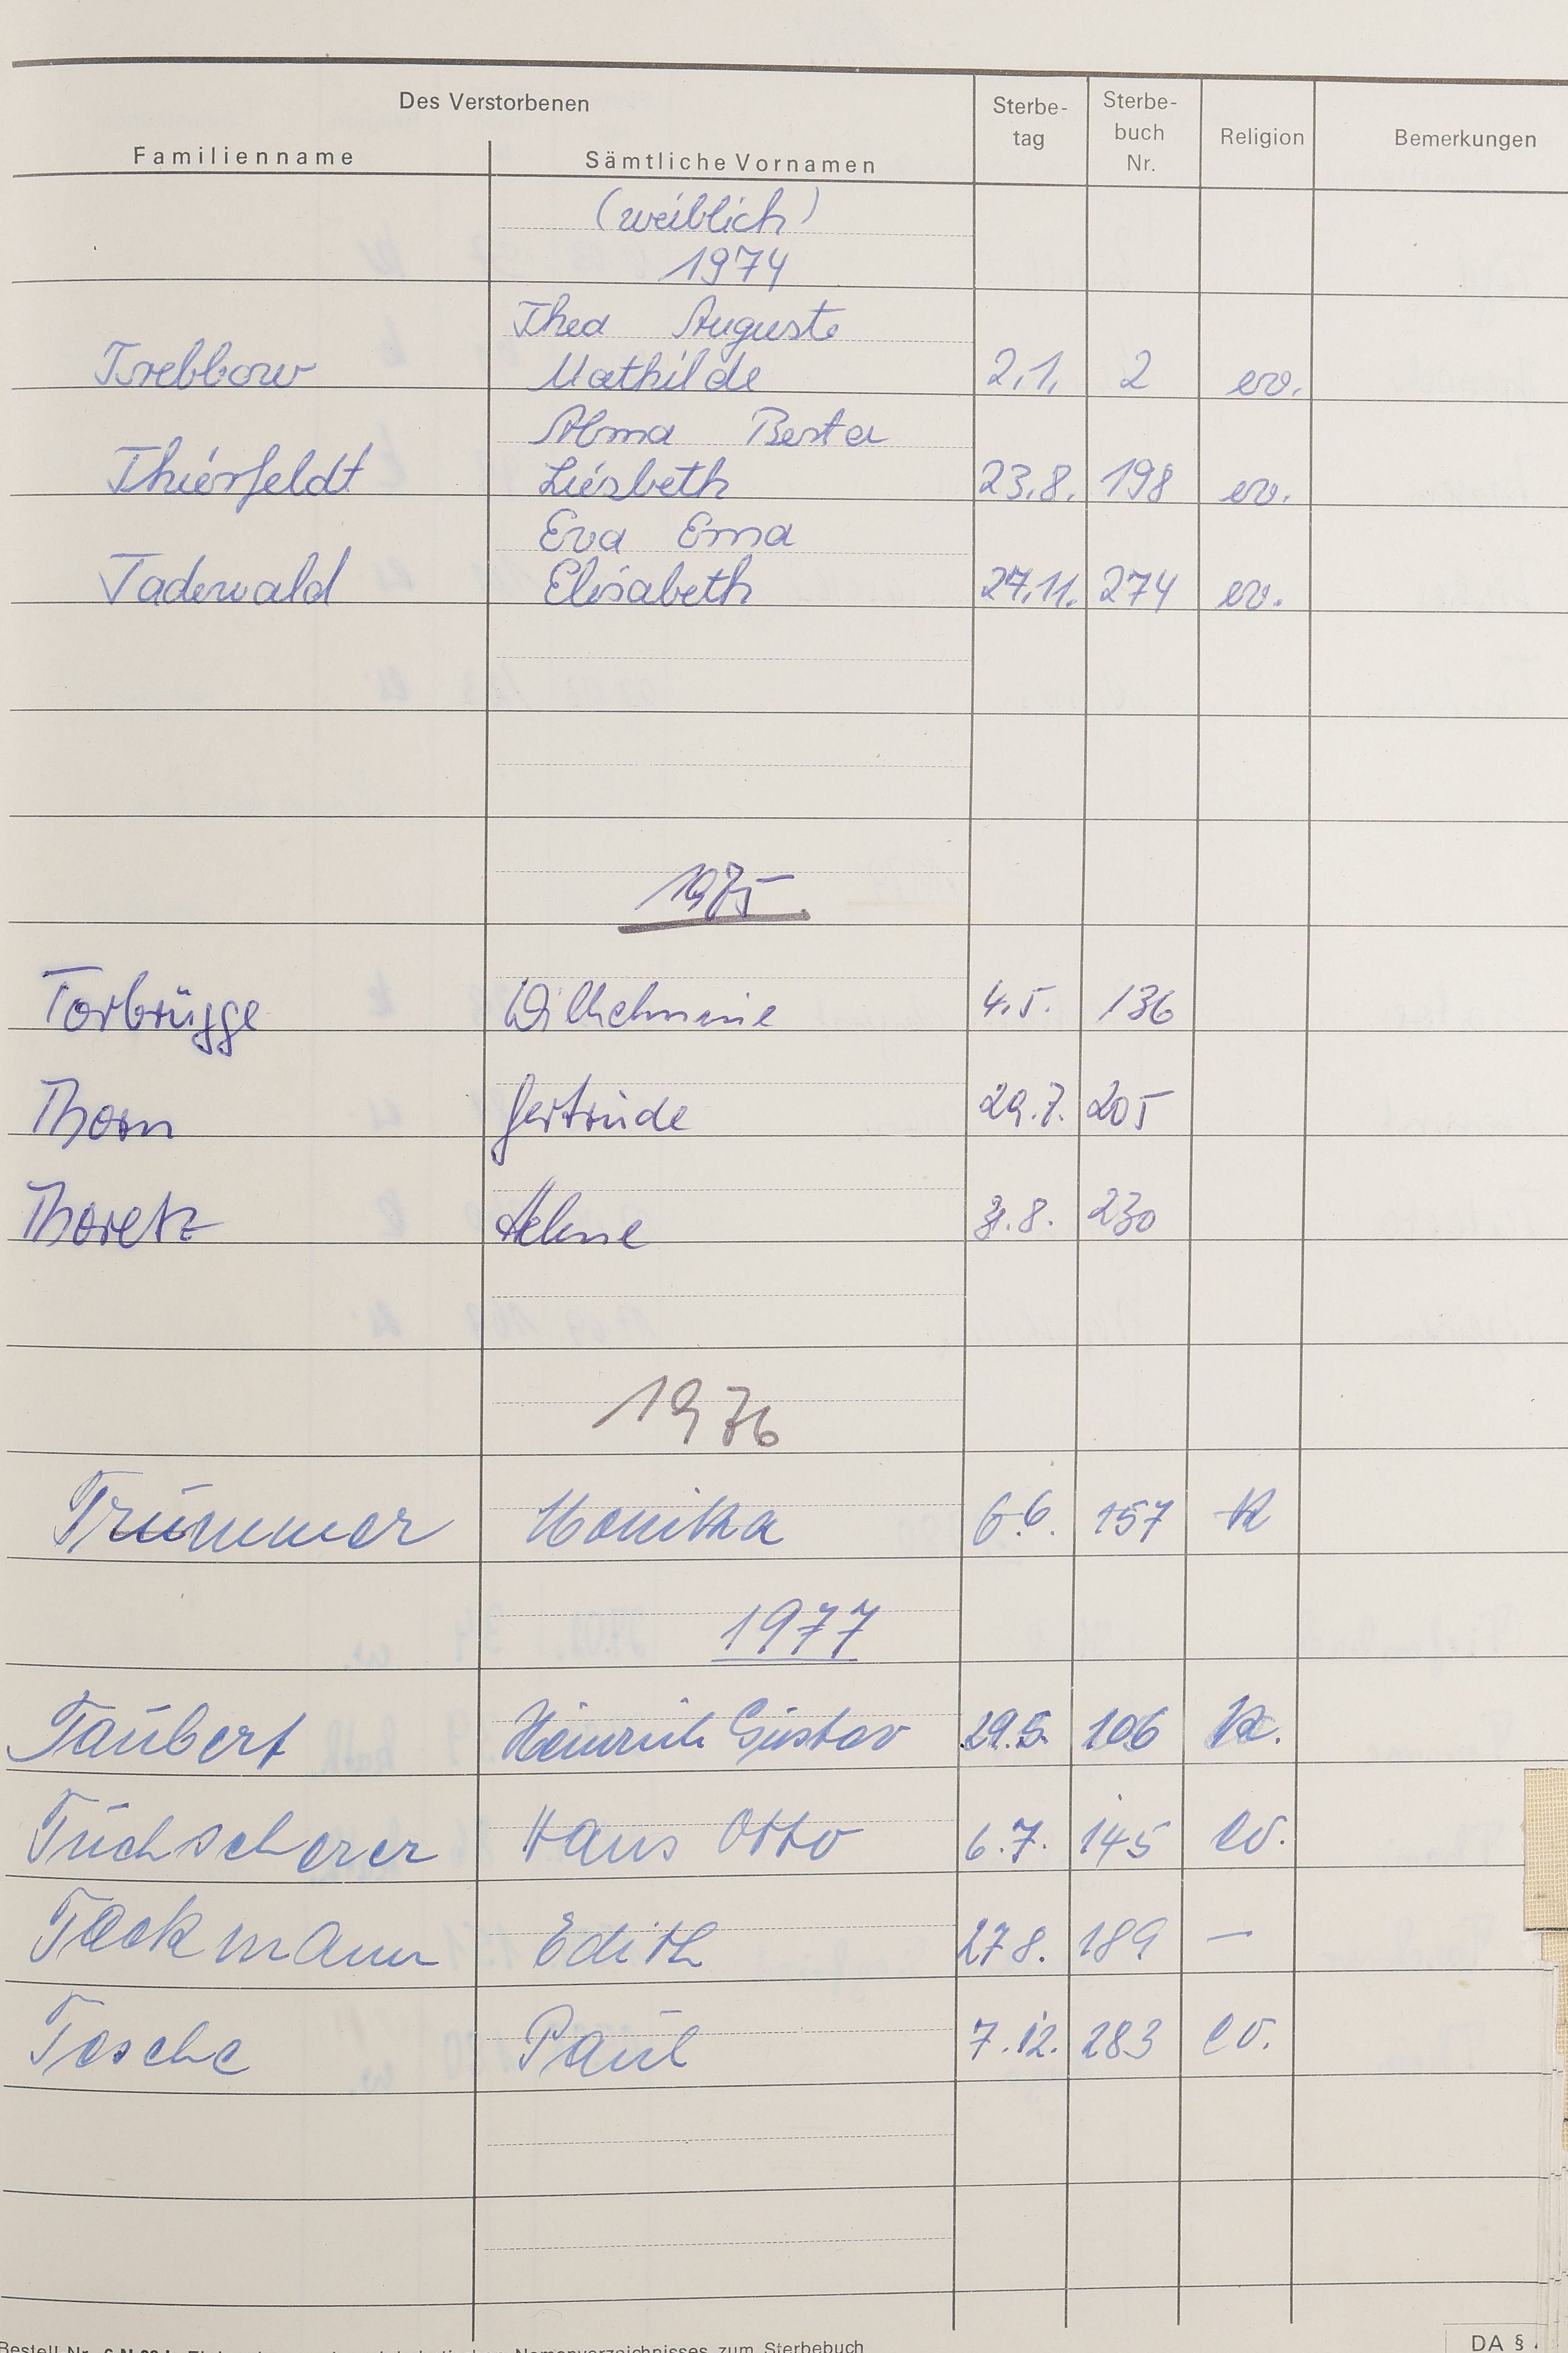 Des Verstorbenen
Familienname Sämtliche Vornamen Sterbe-tag Sterbe-buch Nr. Religion Bemerkungen
(weiblich)
1974
Thea Auguste
Trebbow Mathilde 2.1. 2 ev.
Alma Berta
Thierfeldt Liesbeth 23.8. 198 ev.
Eva Erna
Tadewald Elisabeth 27.11. 274 ev.
1975
Torbrügge Wilhelmine 4.5. 136
Thorn Gertrude 29.7. 205
Thoretz Helene 31.8. 230
1976
Trümmer Monika 6.6. 157 K
1977
Taubert Heinrich Gustav 29.5. 106 K.
Tuchscherer Hans Otto 6.7. 145 ev.
Tackmann Edith 27 8. 189 —
Tesche Paul 7.12. 283 ev.
Namenverzeichnisses zum Sterbebuch
DA §